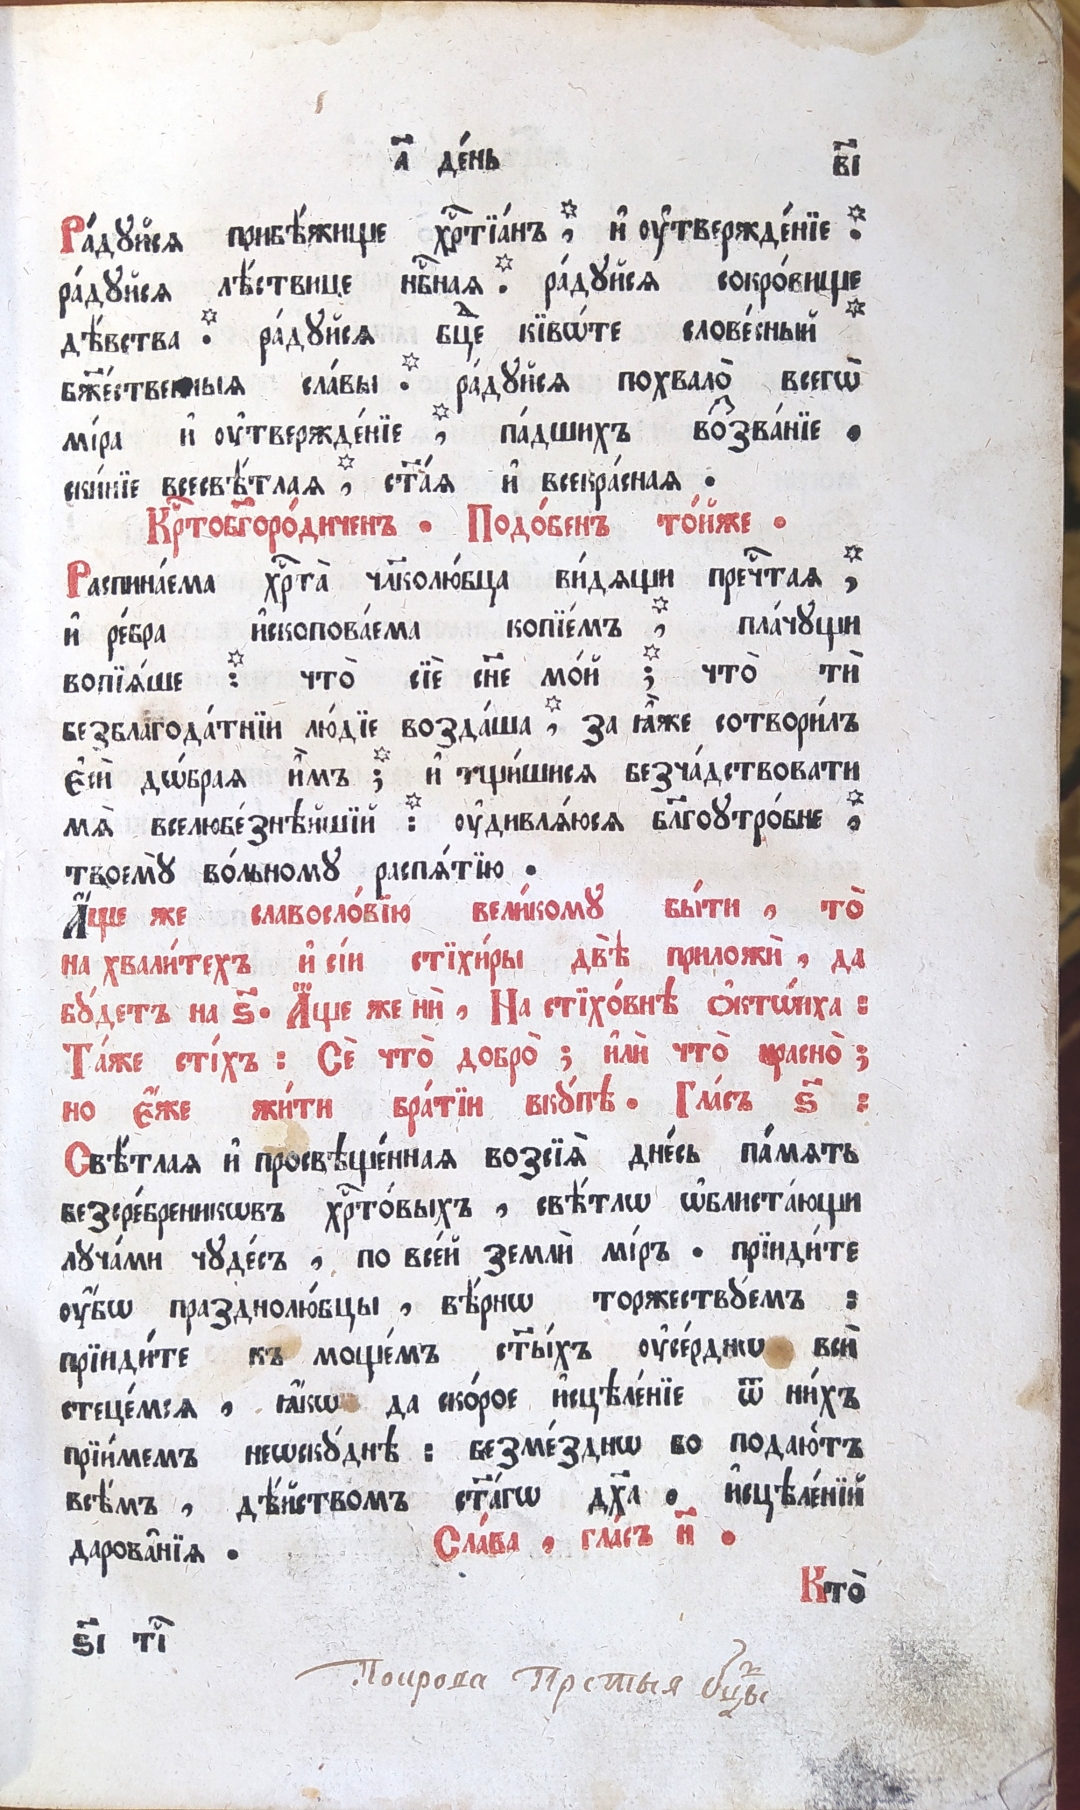 а҃ де́нь
в҃і
Ра́дꙋйсѧ прибѣ́жище хрⷭ҇тїа́нъ , и҆ ᲂу҆твержде́нїе :
ра́дꙋйсѧ лѣ́ствице нбⷭ҇наѧ . ра́дꙋйсѧ сокро́вище
дѣ́вства : ра́дꙋйсѧ бцⷣе кївѡ́те слове́сный
бж҃е́ственныѧ сла́вы : ра́дꙋйсѧ похвало̀ всегѡ̀
мі́ра и҆ ᲂу҆твержде́нїе , па́дшихъ во̑зва́нїе .
ски́нїе всесвѣ́тлаѧ , ст҃а́ѧ и҆ всекра́снаѧ .
Крⷭ҇тобг҃оро́диченъ . Подо́бенъ то́йже .
Распина́ема хрⷭ҇та̀ чл҃колю́бца ви́дѧщи пречⷭ҇таѧ ,
и҆ ре́бра и҆скопова́ема копїе́мъ , пла́чꙋщи
вопїѧ́ше : что̀ сїѐ сн҃е мо́й ; что̀ тѝ
безблагода́тнїи лю́дїе возда́ша , за ꙗ҆̀же сотвори́лъ
є҆сѝ дѡ́браѧ и҆̀мъ ; и҆ тщи́шисѧ безча́дствовати
мѧ̀ вселюбе́знѣйшїй : ᲂу҆дивлѧ́юсѧ бл҃гоутро́бне ,
твоемꙋ̀ во́льномꙋ распѧ́тїю .
А҆́ще же славосло́вїю вели́комꙋ бы́ти , то̀
на хвали́техъ и҆ сі́и стїхи́ры двѣ̀ приложѝ , да
бꙋ́детъ на ѕ҃. А҆́ще же нѝ , На стїхо́внѣ ѻ҆ктѡ́иха :
Та́же сті́хъ : Сѐ что̀ добро̀ ; и҆лѝ что̀ красно̀ ;
но є҆́же жи́ти бра́тїи вкꙋ́пѣ . Гла́съ ѕ҃ :
Свѣ́тлаѧ и҆ просвѣще́ннаѧ возсїѧ̀ дне́сь па́мѧть
безсре́бреникѡвъ хрⷭ҇то́выхъ , свѣ́тлѡ ѡ҆блиста́ющи
лꙋча́ми чꙋде́съ , по все́й землѝ мі́ръ . прїиди́те
ᲂу҆́бѡ празднолю́бцы , вѣ́рнѡ торжествꙋ́емъ :
прїиди́те къ моще́мъ ст҃ы́хъ ᲂу҆се́рднѡ всѝ
стеце́мсѧ , ꙗ҆́кѡ да ско́рое и҆сцѣле́нїе ѿ ни́хъ
прїи́мемъ неѡскꙋ́днѣ : безме́зднѡ бо подаю́тъ
всѣ́мъ , дѣ́йствомъ ст҃а́гѡ дх҃а . и҆сцѣле́нїй
дарова̑нїѧ . Сла́ва , гла́съ и҃ .
Кто̀
ѕ҃і тⷨі
Прстыя